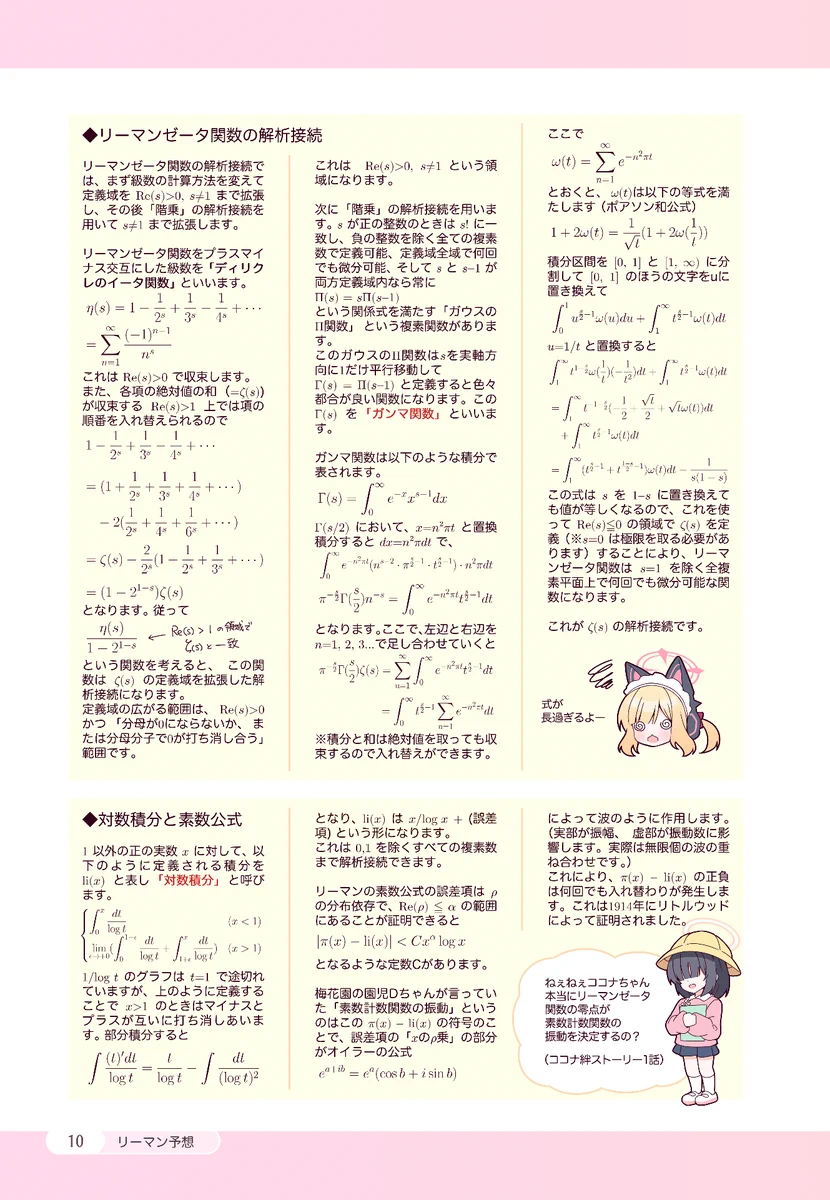 ◆リーマンゼータ関数の解析接続
リーマンゼータ関数の解析接続で
は、まず級数の計算方法を変えて
定義域を Re(s)>0, s≠1 まで拡張
し、その後「階乗」の解析接続を
用いて s≠1 まで拡張します。
リーマンゼータ関数をプラスマイ
ナス交互にした級数を「ディリク
レのイータ関数」といいます。
η(s) = 1 − 1/2^s + 1/3^s − 1/4^s + ⋯
= ∑_{n=1}^{∞} (−1)^{n−1}/n^s
これは Re(s)>0 で収束します。
また、各項の絶対値の和（=ζ(s)）
が収束する Re(s)>1 上では項の
順番を入れ替えられるので
1 − 1/2^s + 1/3^s − 1/4^s + ⋯
= (1 + 1/2^s + 1/3^s + 1/4^s + ⋯)
− 2(1/2^s + 1/4^s + 1/6^s + ⋯)
= ζ(s) − 2/2^s (1 − 1/2^s + 1/3^s + ⋯)
= (1 − 2^{1−s})ζ(s)
となります。従って
η(s)/(1 − 2^{1−s}) ← Re(s)>1 の領域で
ζ(s) と一致
という関数を考えると、 この関
数は ζ(s) の定義域を拡張した解
析接続になります。
定義域の広がる範囲は、Re(s)>0
かつ「分母が0にならないか、ま
たは分母分子で0が打ち消し合う」
範囲です。
これは Re(s)>0, s≠1 という領
域になります。
次に「階乗」の解析接続を用いま
す。s が正の整数のときは s! に一
致し、負の整数を除く全ての複素
数で定義可能、定義域全域で何回
でも微分可能、そして s と s−1 が
両方定義域内なら常に
Π(s) = sΠ(s−1)
という関係式を満たす「ガウスの
Π関数」という複素関数がありま
す。
このガウスのΠ関数はsを実軸方
向に1だけ平行移動して
Γ(s) = Π(s−1) と定義すると色々
都合が良い関数になります。この
Γ(s) を「ガンマ関数」といいま
す。
ガンマ関数は以下のような積分で
表されます。
Γ(s) = ∫_0^∞ e^{−x}x^{s−1}dx
Γ(s/2) において、x=n²πt と置換
積分すると dx=n²πdt で、
∫_0^∞ e^{−n²πt}(n^{s−2}·π^{s/2−1}·t^{s/2−1})·n²πdt
π^{−s/2}Γ(s/2)n^{−s} = ∫_0^∞ e^{−n²πt}t^{s/2−1}dt
となります。ここで、左辺と右辺を
n=1, 2, 3...で足し合わせていくと
π^{−s/2}Γ(s/2)ζ(s) = ∑_{n=1}^{∞} ∫_0^∞ e^{−n²πt}t^{s/2−1}dt
= ∫_0^∞ t^{s/2−1} ∑_{n=1}^{∞} e^{−n²πt}dt
※積分と和は絶対値を取っても収
束するので入れ替えができます。
ここで
ω(t) = ∑_{n=1}^{∞} e^{−n²πt}
とおくと、ω(t)は以下の等式を満
たします（ポアソン和公式）
1 + 2ω(t) = 1/√t (1 + 2ω(1/t))
積分区間を [0, 1] と [1, ∞) に分
割して [0, 1] のほうの文字をuに
置き換えて
∫_0^1 u^{s/2−1}ω(u)du + ∫_1^∞ t^{s/2−1}ω(t)dt
u=1/t と置換すると
∫_1^∞ t^{1−s/2}ω(1/t)(−1/t²)dt + ∫_1^∞ t^{s/2−1}ω(t)dt
= ∫_1^∞ t^{−1−s/2}(−1/2 + √t/2 + √tω(t))dt
+ ∫_1^∞ t^{s/2−1}ω(t)dt
= ∫_1^∞ (t^{s/2−1} + t^{(1−s)/2−1})ω(t)dt − 1/(s(1−s))
この式は s を 1−s に置き換えて
も値が等しくなるので、これを使
って Re(s)≦0 の領域で ζ(s) を定
義（※s=0 は極限を取る必要があ
ります）することにより、リーマ
ンゼータ関数は s=1 を除く全複
素平面上で何回でも微分可能な関
数になります。
これが ζ(s) の解析接続です。
式が
長過ぎるよー
◆対数積分と素数公式
1 以外の正の実数 x に対して、以
下のように定義される積分を
li(x) と表し「対数積分」と呼び
ます。
∫_0^x dt/log t (x < 1)
lim_{ε→+0}(∫_0^{1−ε} dt/log t + ∫_{1+ε}^x dt/log t) (x > 1)
1/log t のグラフは t=1 で途切れ
ていますが、上のように定義する
ことで x>1 のときはマイナスと
プラスが互いに打ち消しあいま
す。部分積分すると
∫ (t)′dt/log t = t/log t − ∫ dt/(log t)²
となり、li(x) は x/log x + (誤差
項) という形になります。
これは 0,1 を除くすべての複素数
まで解析接続できます。
リーマンの素数公式の誤差項は ρ
の分布依存で、Re(ρ) ≦ α の範囲
にあることが証明できると
|π(x) − li(x)| < Cx^α log x
となるような定数Cがあります。
梅花園の園児Dちゃんが言ってい
た「素数計数関数の振動」という
のはこの π(x) − li(x) の符号のこ
とで、誤差項の「xのρ乗」の部分
がオイラーの公式
e^{a+ib} = e^a(cos b + i sin b)
によって波のように作用します。
（実部が振幅、 虚部が振動数に影
響します。実際は無限個の波の重
ね合わせです。）
これにより、π(x) − li(x) の正負
は何回でも入れ替わりが発生しま
す。これは1914年にリトルウッド
によって証明されました。
ねぇねぇココナちゃん
本当にリーマンゼータ
関数の零点が
素数計数関数の
振動を決定するの？
（ココナ絆ストーリー1話）
10 リーマン予想